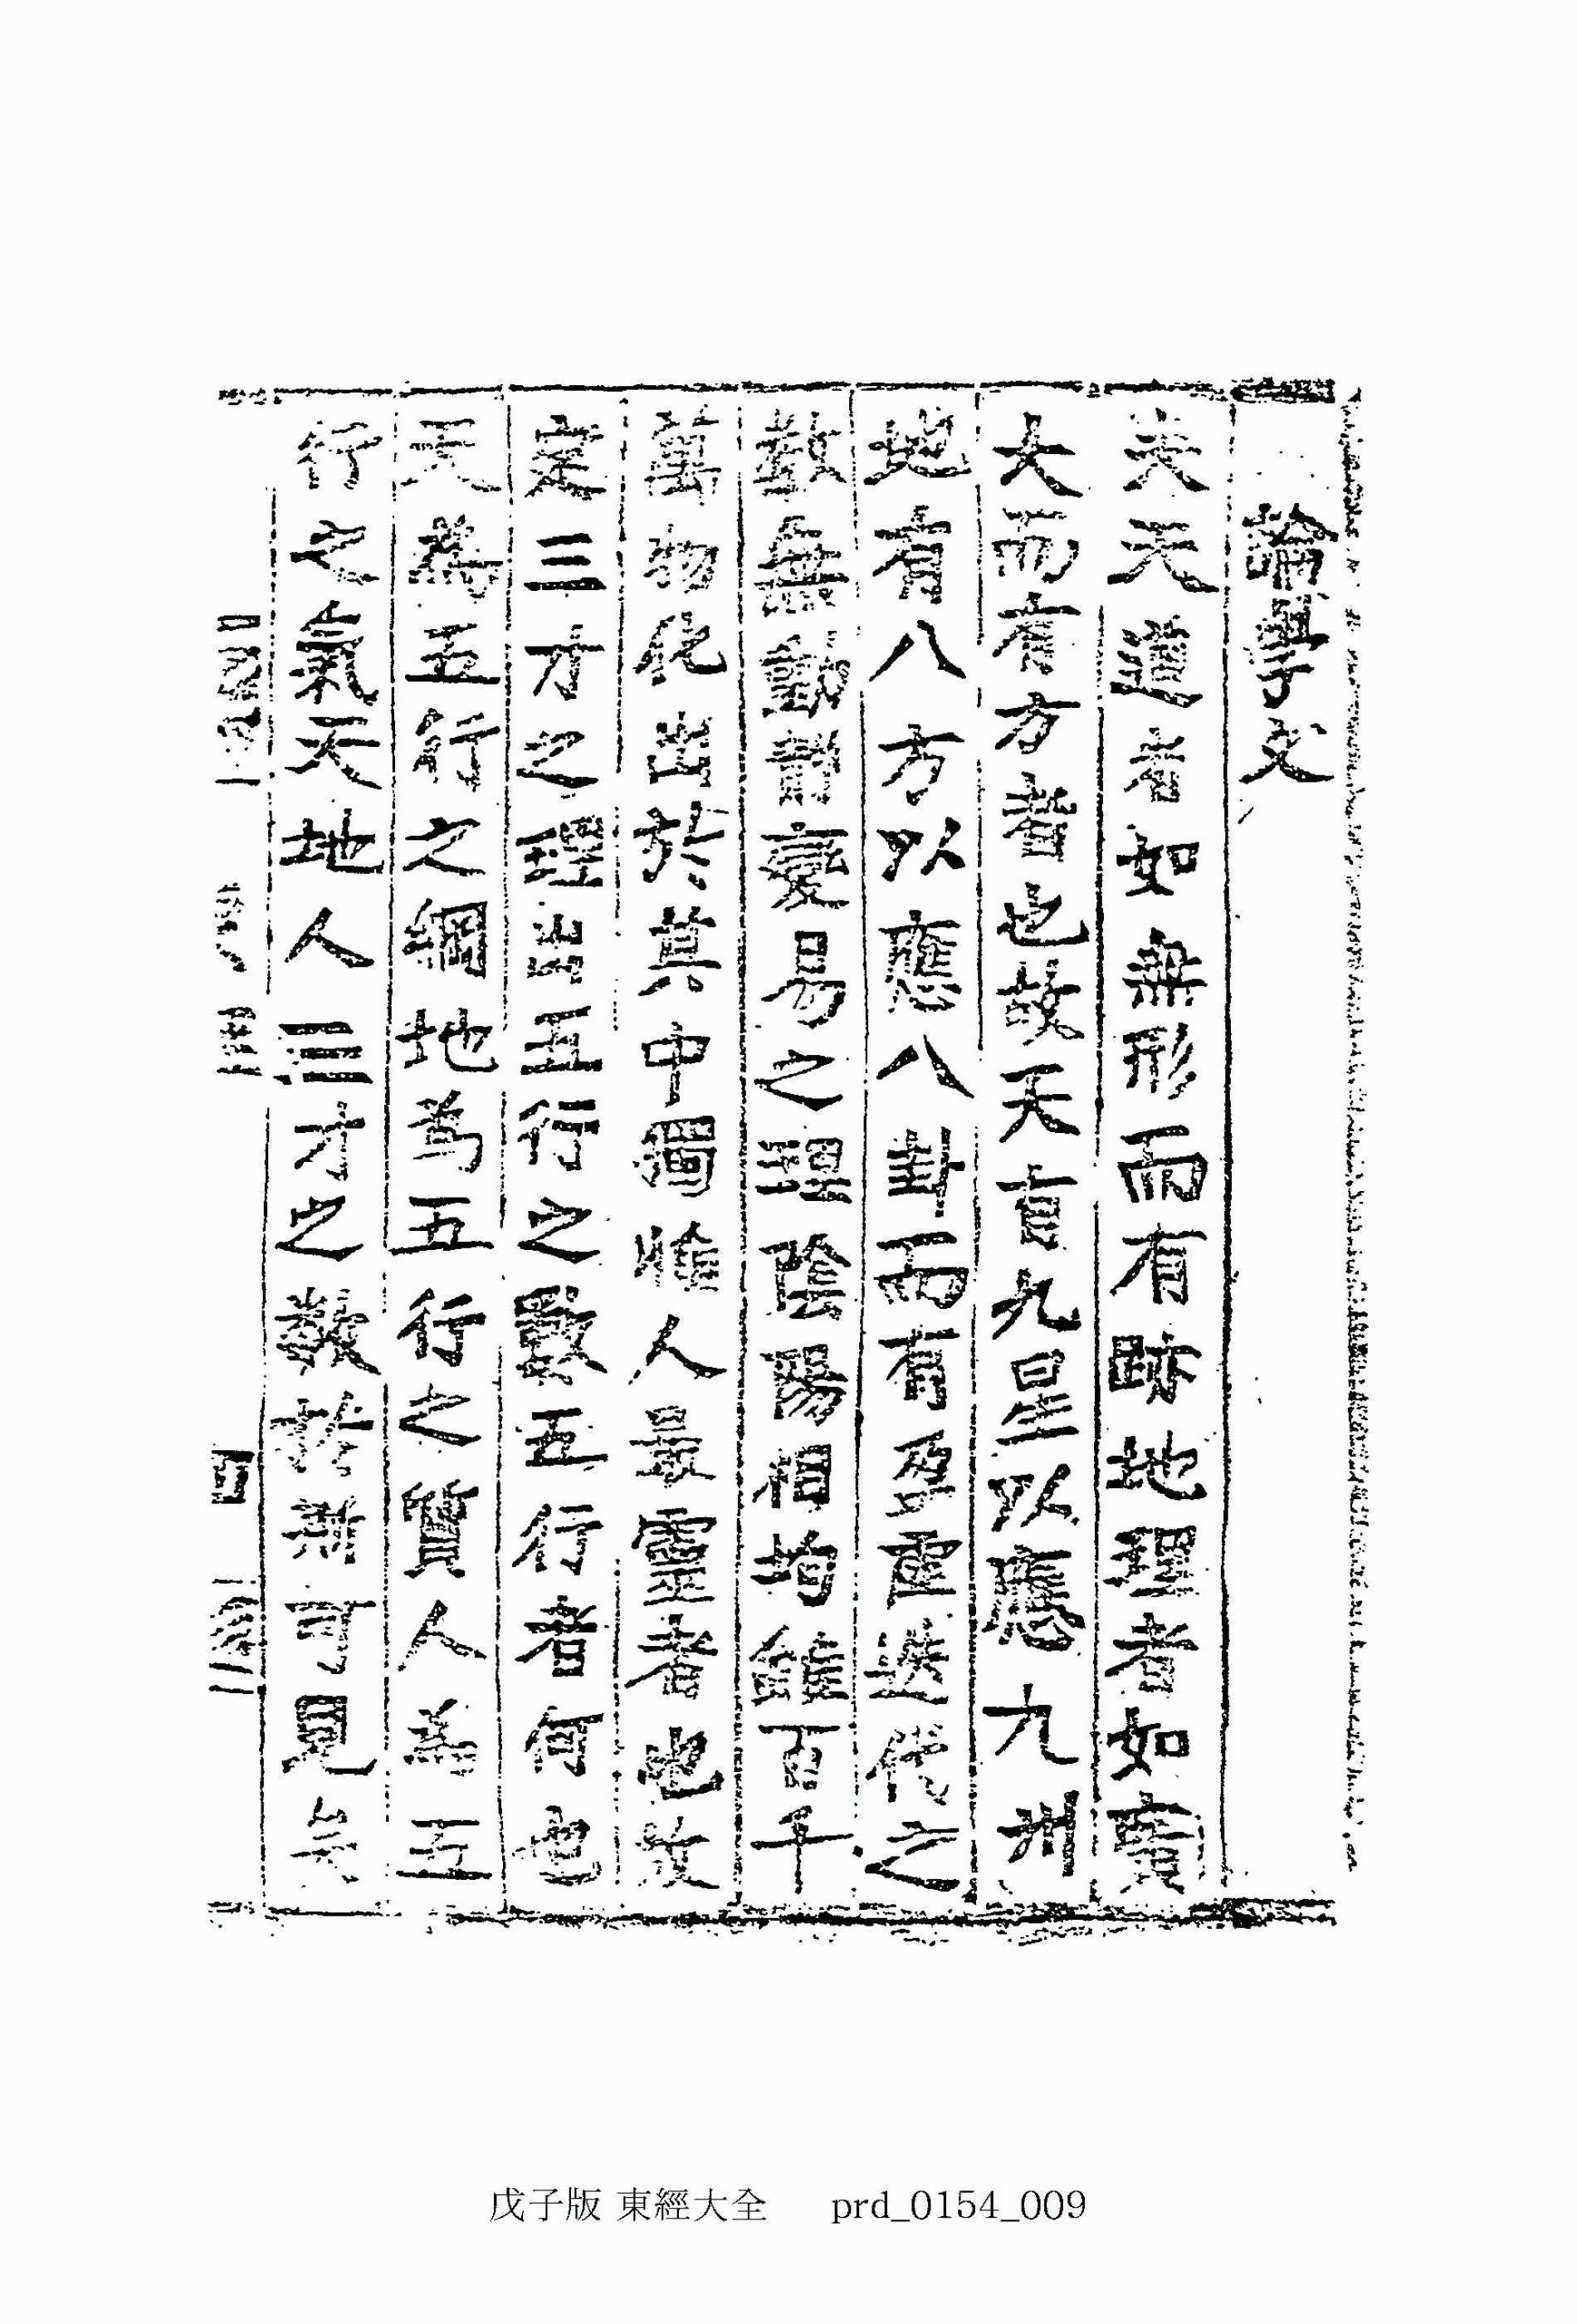 論學文
夫天道者如無形而有跡地理者如廣
大而有方者也故天有九星以應九州
地有八方以應八卦而有盈虛迭代之
數無動靜變易之理陰陽相均雖百千
萬物化出於其中獨惟人最靈者也故
定三才之理出五行之數五行者何也
天爲五行之綱地爲五行之質人爲五
行之氣天地人三才之數於斯可見矣
戊子版 東經大全 prd_0154_009